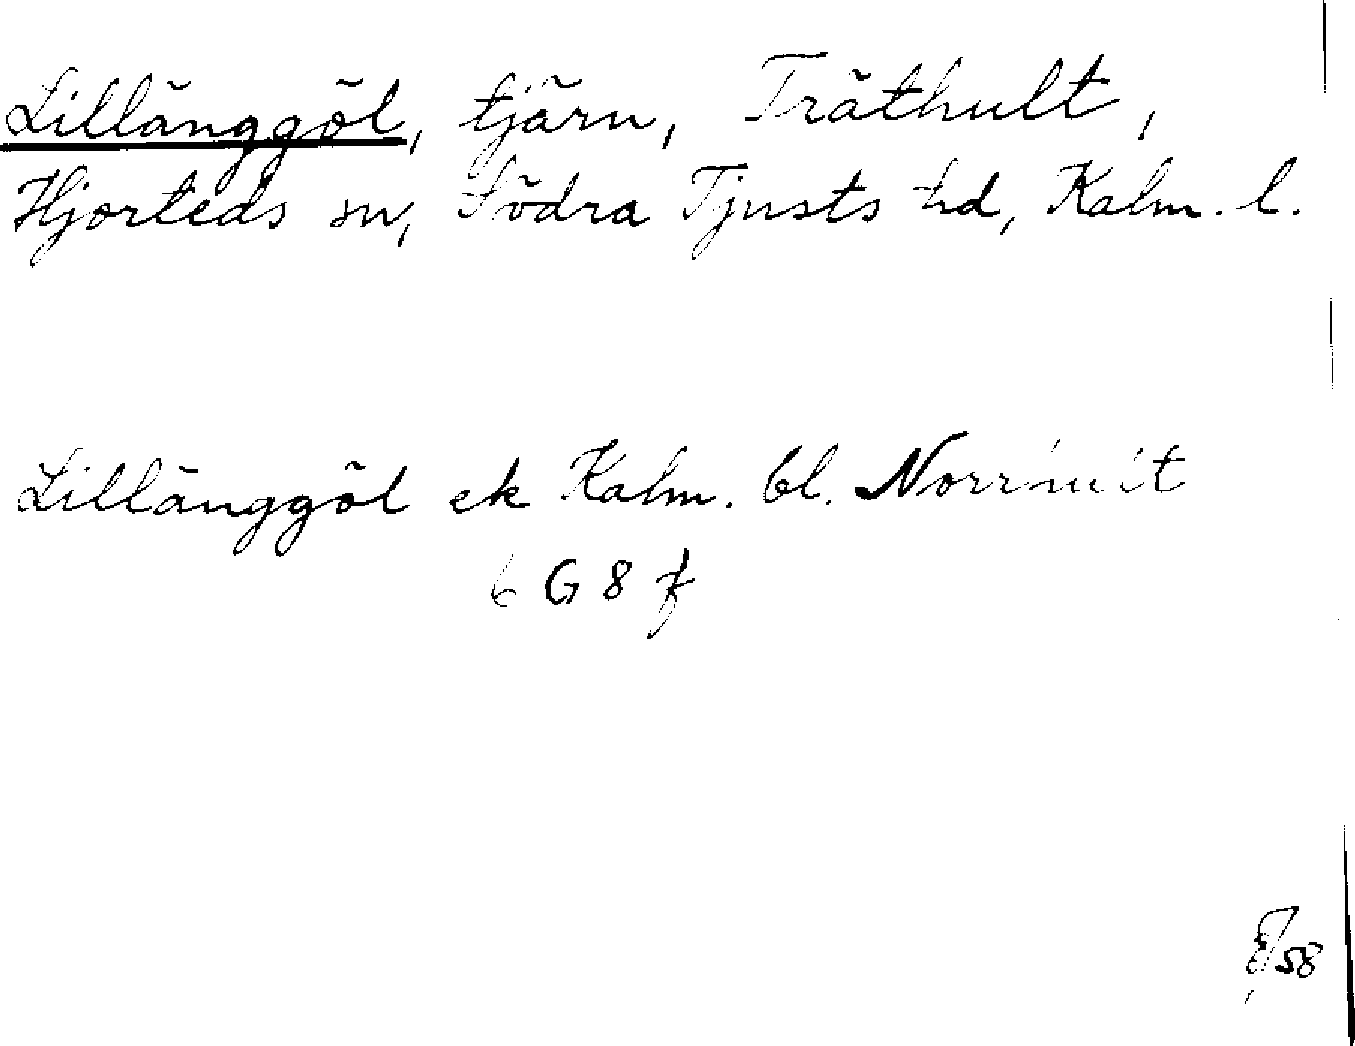 Lillänggöl, tjärn, Träthult,
Hjorteds sn, Södra Tjusts hd, Kalm. l.
Lillänggöl ek Kalm. bl.
6 G 8 f
58